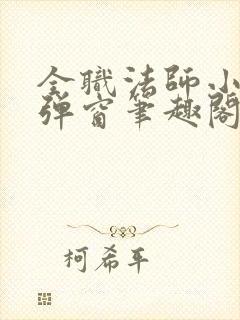 全職法師小
彈窗筆趣閣
柯希平